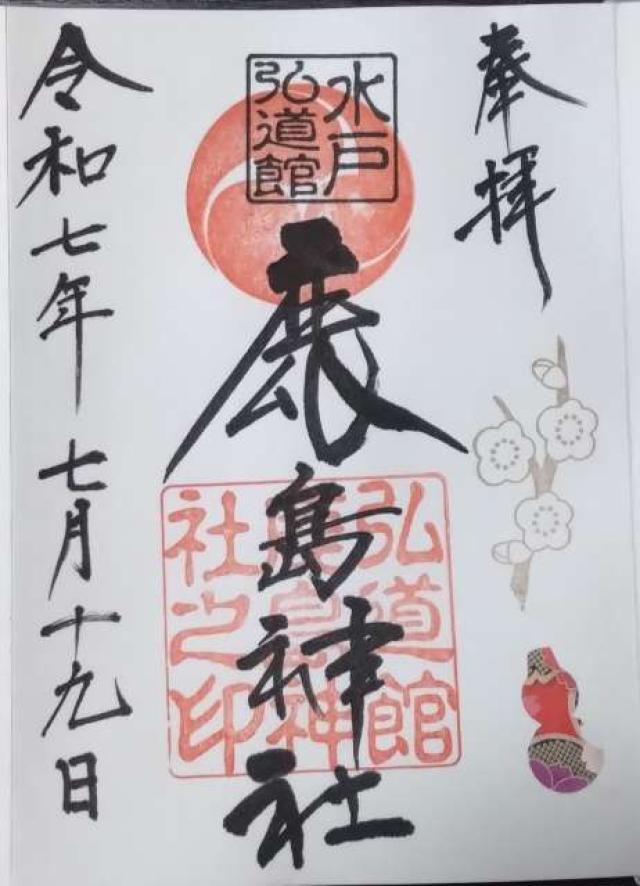 奉拝
水戸
弘道館
鹿島神社
弘道館
鹿島神
社之印
令和七年 七月十九日